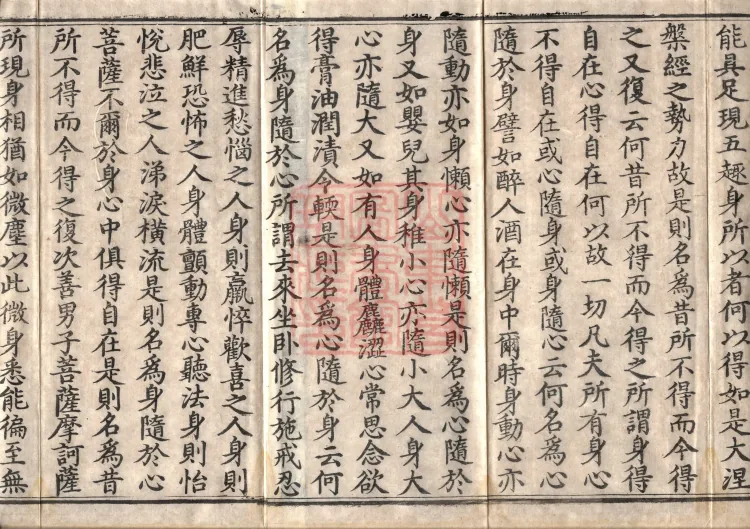 能具足現五趣身所以者何以得如是大涅
槃經之勢力故是則名為昔所不得而今得
之又復云何昔所不得而今得之所謂身得
自在心得自在何以故一切凡夫所有身心
不得自在或心隨身或身隨心云何名為心
隨於身譬如醉人酒在身中爾時身動心亦
隨動亦如身懶心亦隨懶是則名為心隨於
身又如嬰兒其身稚小心亦隨小大人身大
心亦隨大又如有人身體麤澀心常思念欲
得膏油潤漬令輭是則名為心隨於身云何
名為身隨於心所謂去來坐卧修行施戒忍
辱精進愁惱之人身則羸悴歡喜之人身則
肥鮮恐怖之人身體顫動專心聽法身則怡
悅悲泣之人涕淚橫流是則名為身隨於心
菩薩不爾於身心中俱得自在是則名為昔
所不得而今得之復次善男子菩薩摩訶薩
所現身相猶如微塵以此微身悉能徧至無